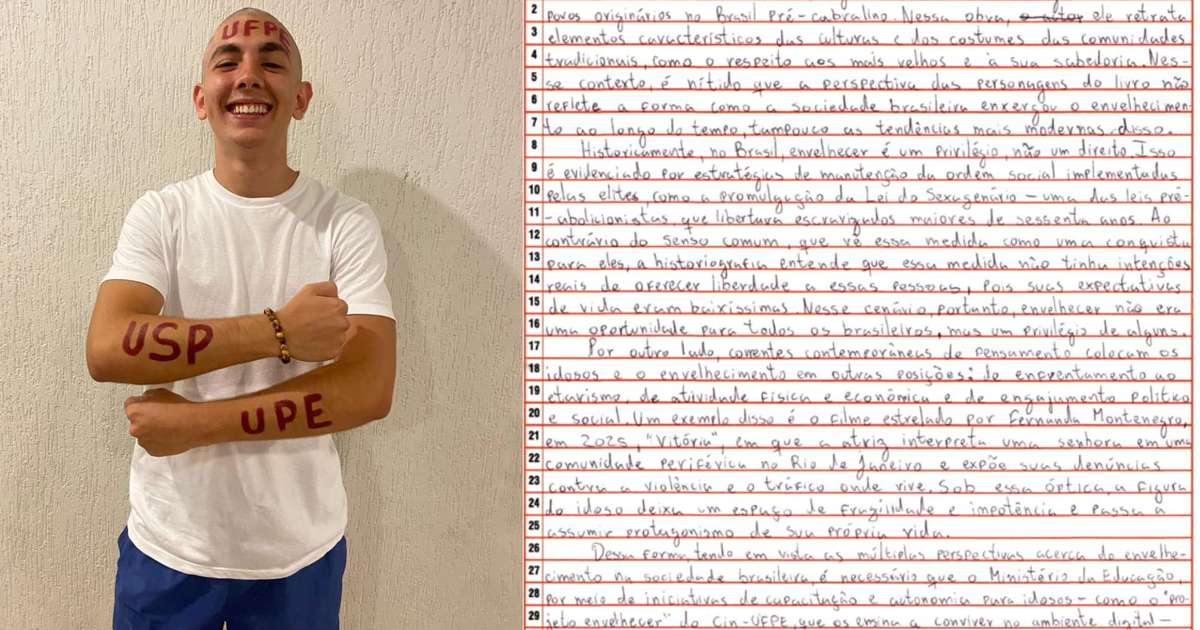 UFPE
USP
UPE
2 povos originários no Brasil pré-cabralino. Nessa obra, o autor ele retrata
3 elementos característicos das culturas e dos costumes das comunidades
4 tradicionais, como o respeito aos mais velhos e à sua sabedoria. Nes-
5 se contexto, é nítido que a perspectiva das personagens do livro não
6 reflete a forma como a sociedade brasileira enxergou o envelhecimen-
7 to ao longo do tempo, tampouco as tendências mais modernas disso.
8 Historicamente, no Brasil, envelhecer é um privilégio, não um direito. Isso
9 é evidenciado por estratégias de manutenção da ordem social implementadas
10 pelas elites, como a promulgação da Lei do Sexagenário - uma das leis pré-
11 -abolicionistas que libertava escravizados maiores de sessenta anos. Ao
12 contrário do senso comum, que vê essa medida como uma conquista
13 para eles, a historiografia entende que essa medida não tinha intenções
14 reais de oferecer liberdade a essas pessoas, pois suas expectativas
15 de vida eram baixíssimas. Nesse cenário, portanto, envelhecer não era
16 uma oportunidade para todos os brasileiros, mas um privilégio de alguns.
17 Por outro lado, correntes contemporâneas de pensamento colocam os
18 idosos e o envelhecimento em outras posições: de enfrentamento ao
19 etarismo, de atividade física e econômica e de engajamento político
20 e social. Um exemplo disso é o filme estrelado por Fernanda Montenegro,
21 em 2025, "Vitória", em que a atriz interpreta uma senhora em uma
22 comunidade periférica no Rio de Janeiro e expõe suas denúncias
23 contra a violência e o tráfico onde vive. Sob essa óptica, a figura
24 do idoso deixa um espaço de fragilidade e impotência e passa a
25 assumir protagonismo de sua própria vida.
26 Dessa forma, tendo em vista as múltiplas perspectivas acerca do envelhe-
27 cimento na sociedade brasileira, é necessário que o Ministério da Educação,
28 por meio de iniciativas de capacitação e autonomia para idosos - como o "pro-
29 jeto envelhecer" do Cin-UFPE, que os ensina a conviver no ambiente digital -